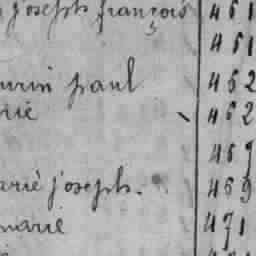 joseph françois 461
461
paul 462
rié 462
469
arié joseph. 469
marie 471